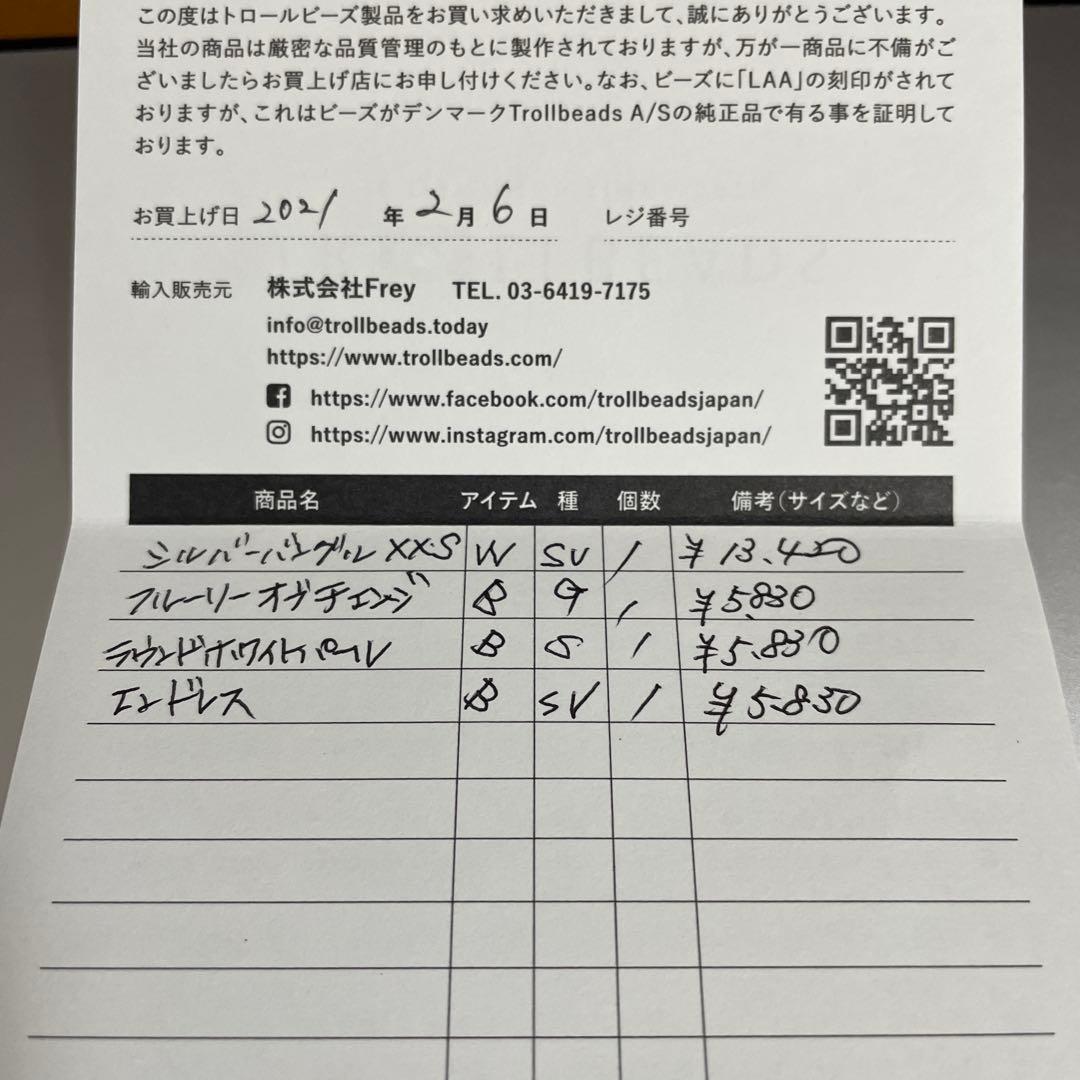 この度はトロールビーズ製品をお買い求めいただきまして、誠にありがとうございます。
当社の商品は厳密な品質管理のもとに製作されておりますが、万が一商品に不備がご
ざいましたらお買上げ店にお申し付けください。なお、ビーズに「LAA」の刻印がされて
おりますが、これはビーズがデンマークTrollbeads A/Sの純正品で有る事を証明して
おります。
お買上げ日 2021 年 2 月 6 日 レジ番号
輸入販売元 株式会社Frey TEL. 03-6419-7175
info@trollbeads.today
https://www.trollbeads.com/
https://www.facebook.com/trollbeadsjapan/
https://www.instagram.com/trollbeadsjapan/
商品名 アイテム 種 個数 備考(サイズなど)
シルバーバングルXXS W SV 1 ¥13.420
フルーリーオブチェンジ B G 1 ¥5.830
ラウンドホワイトパール B S 1 ¥5.830
エンドレス B SV 1 ¥5.830